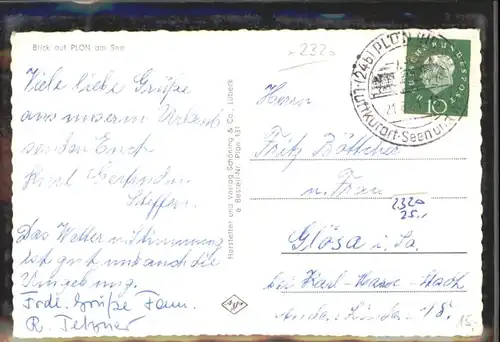 Blick auf PLÖN am See
Viele liebe Grüße
aus unserem Urlaub
senden Euch
Kurt
Steffen.
Das Wetter u. Stimmung
ist gut und auch die
Umgebung.
Frdl. Grüße Fam.
R. Tetzner
Hersteller und Verlag Schöning & Co., Lübeck
Bestell-Nr. Plön 131
2320
(24b) PLÖN
Luftkurort-Seen
DEUTSCHE BUNDESPOST
10
Herrn
Fritz Böttcher
u. Frau
2320
25.-
Glösa i. Sa.
bei Karl-Marx-Stadt
An der Linde 18.
15,-